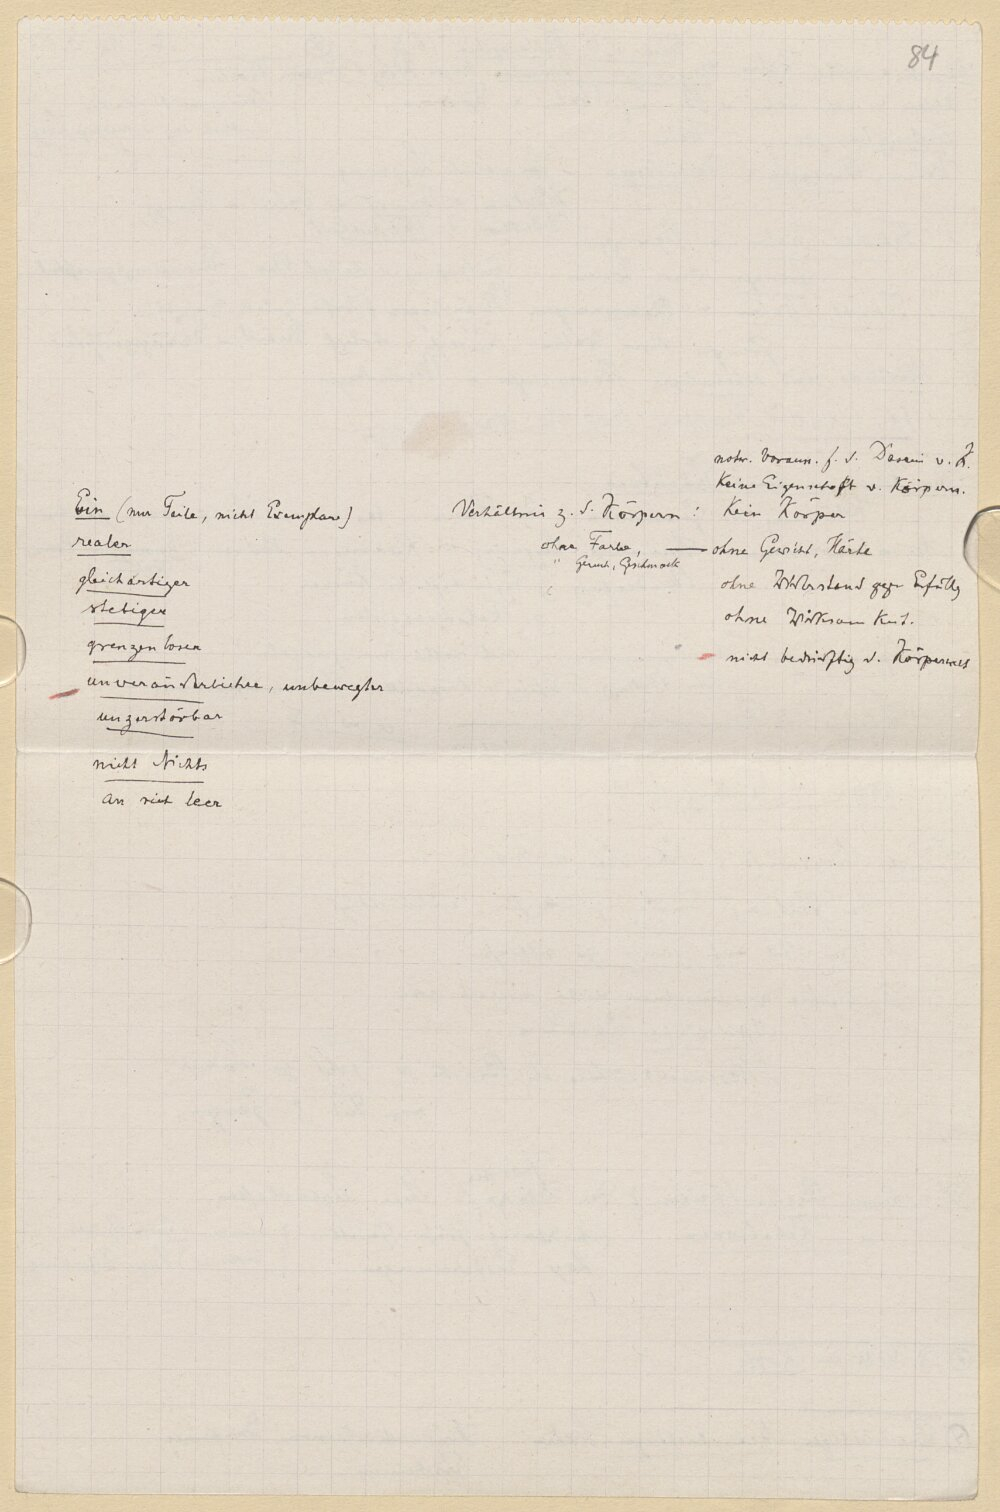 84
Ein (nur Teile, nicht Exemplare)
realer
gleichartiger
stetiger
grenzenloser
unveränderlicher, unbewegter
unzerstörbar
nicht Nichts
an sich leer
Verhältnis z. d. Körpern:
ohne Farbe,
" Geruch, Geschmack
notw. Vorauss. f. d. Dasein v. K.
Keine Eigenschaft v. Körpern.
Kein Körper
ohne Gewicht, Härte
ohne Widerstand gegen Erfüllg
ohne Wirksamkeit.
nicht bedürftig d. Körperwelt